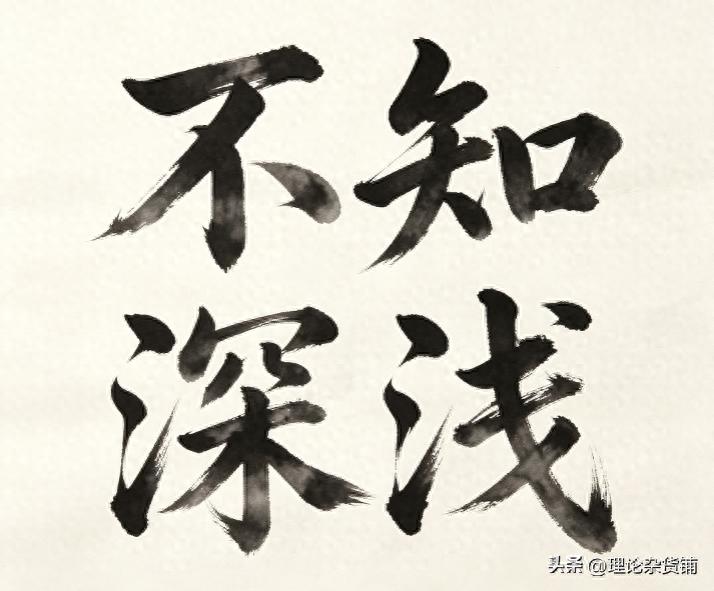 不知
深浅
头条 @理论杂货铺